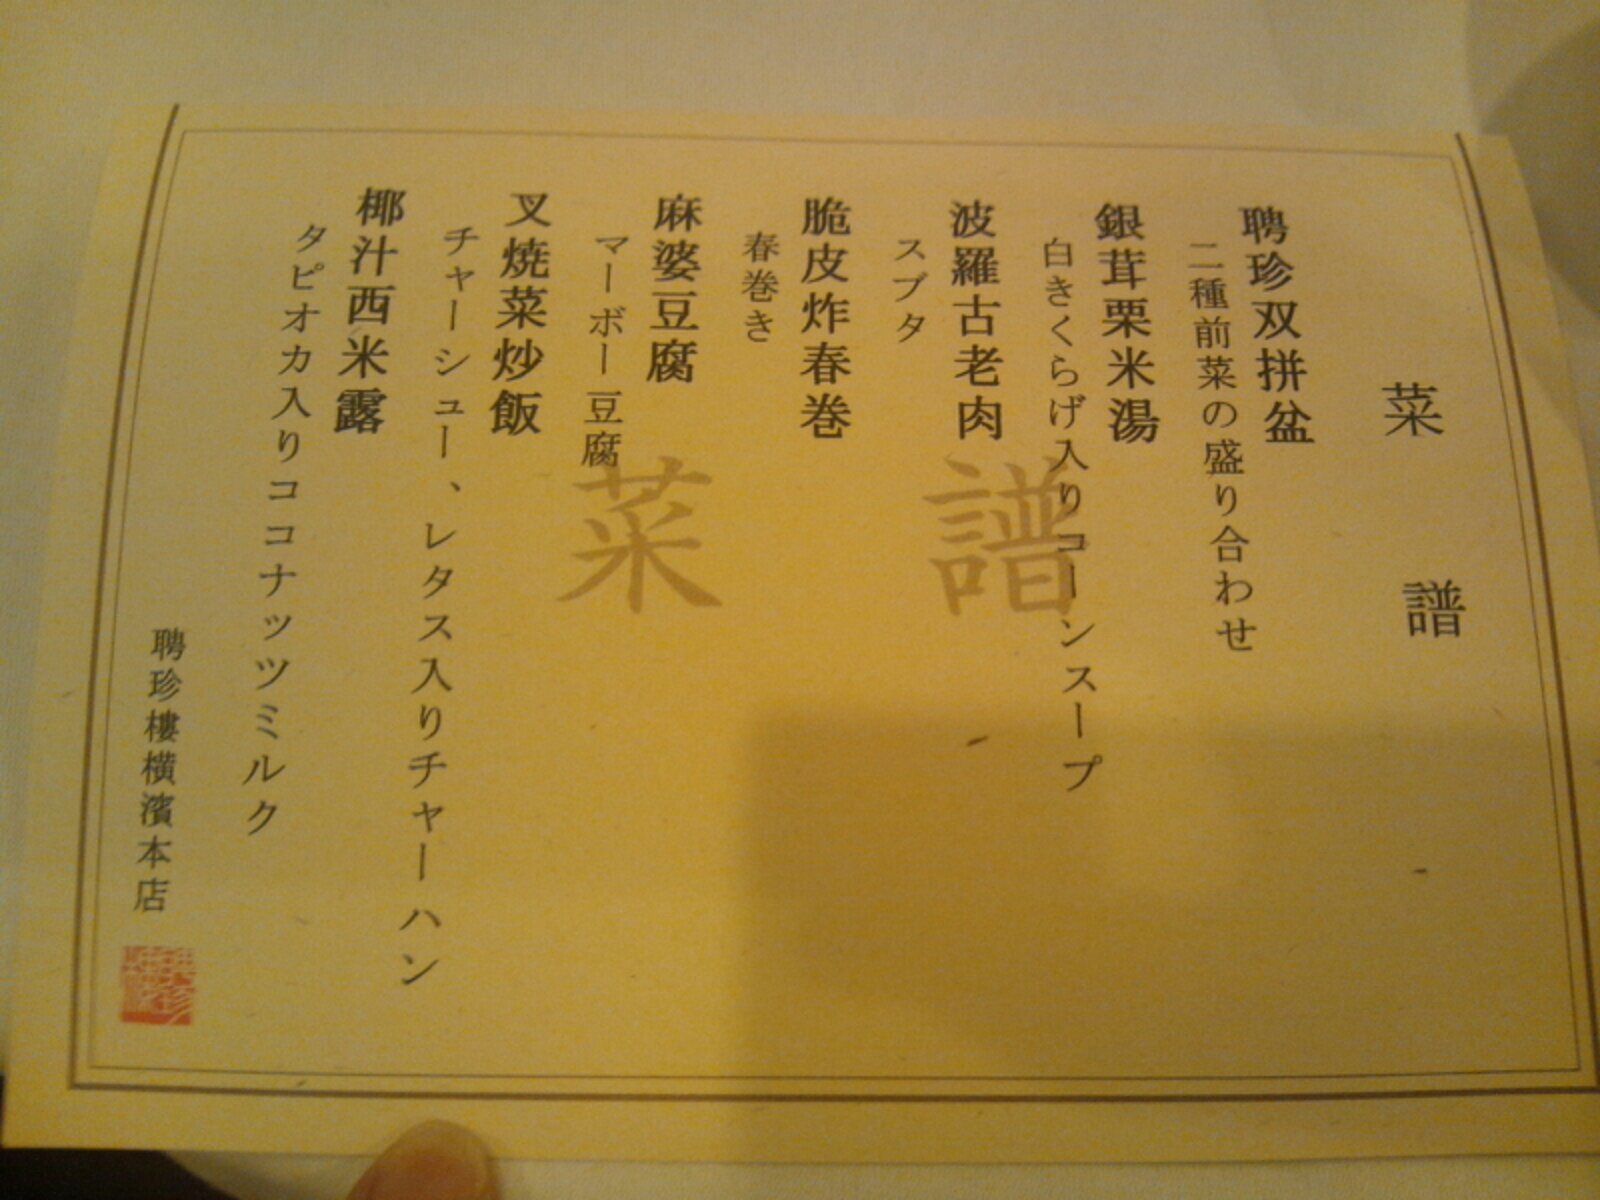 菜譜
聘珍双拼盆
二種前菜の盛り合わせ
銀茸栗米湯
白きくらげ入りコーンスープ
波羅古老肉
スブタ
脆皮炸春巻
春巻き
麻婆豆腐
マーボー豆腐
叉焼菜炒飯
チャーシュー、レタス入りチャーハン
椰汁西米露
タピオカ入りココナッツミルク
聘珍樓横濱本店
菜譜